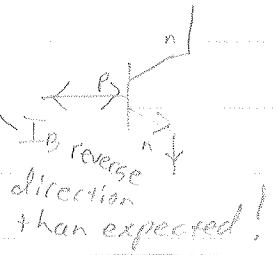 n
P
n
I_B, reverse
direction
than expected!